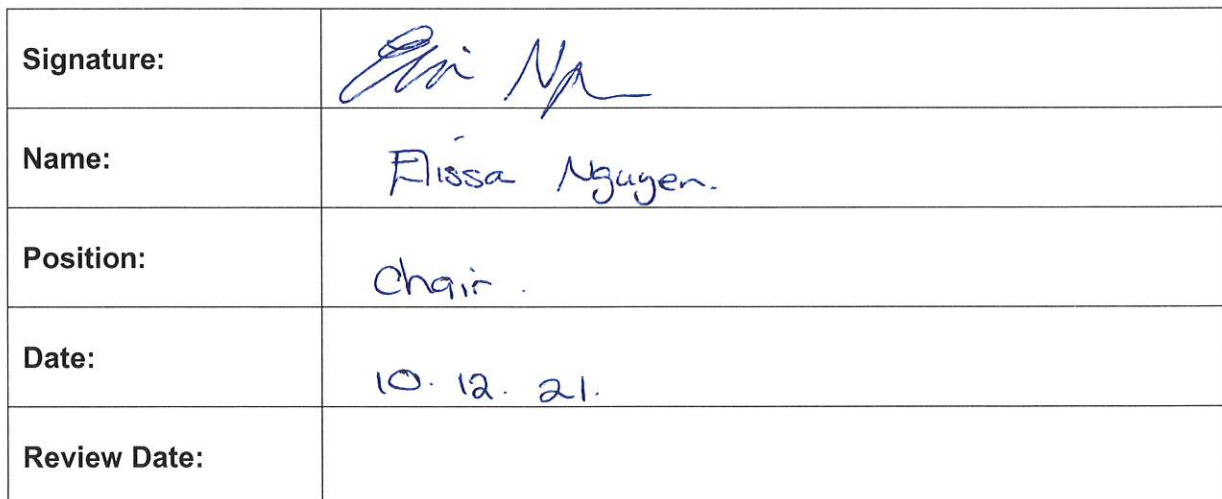 Signature: Elin Ng
Name: Elissa Nguyen.
Position: Chair.
Date: 10. 12. 21.
Review Date: